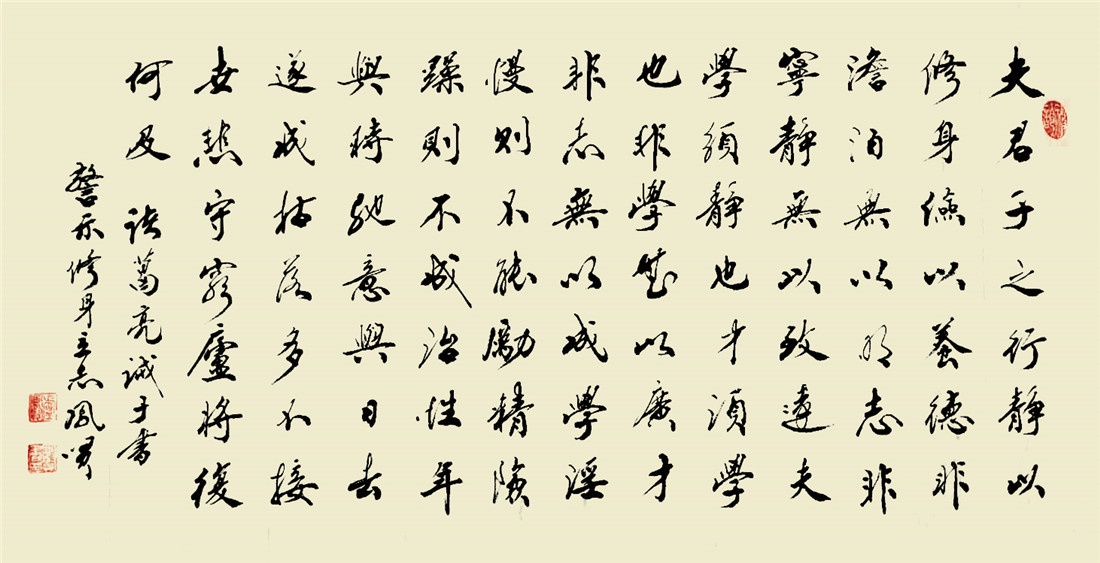 夫君子之行靜以
修身儉以養德非
澹泊無以明志非
寧靜無以致遠夫
學須靜也才須學
也非學無以廣才
非志無以成學淫
慢則不能勵精險
躁則不成治性年
與時馳意與日去
遂成枯落多不接
世悲守窮廬將復
何及 諸葛亮誡子書
警示修身立志